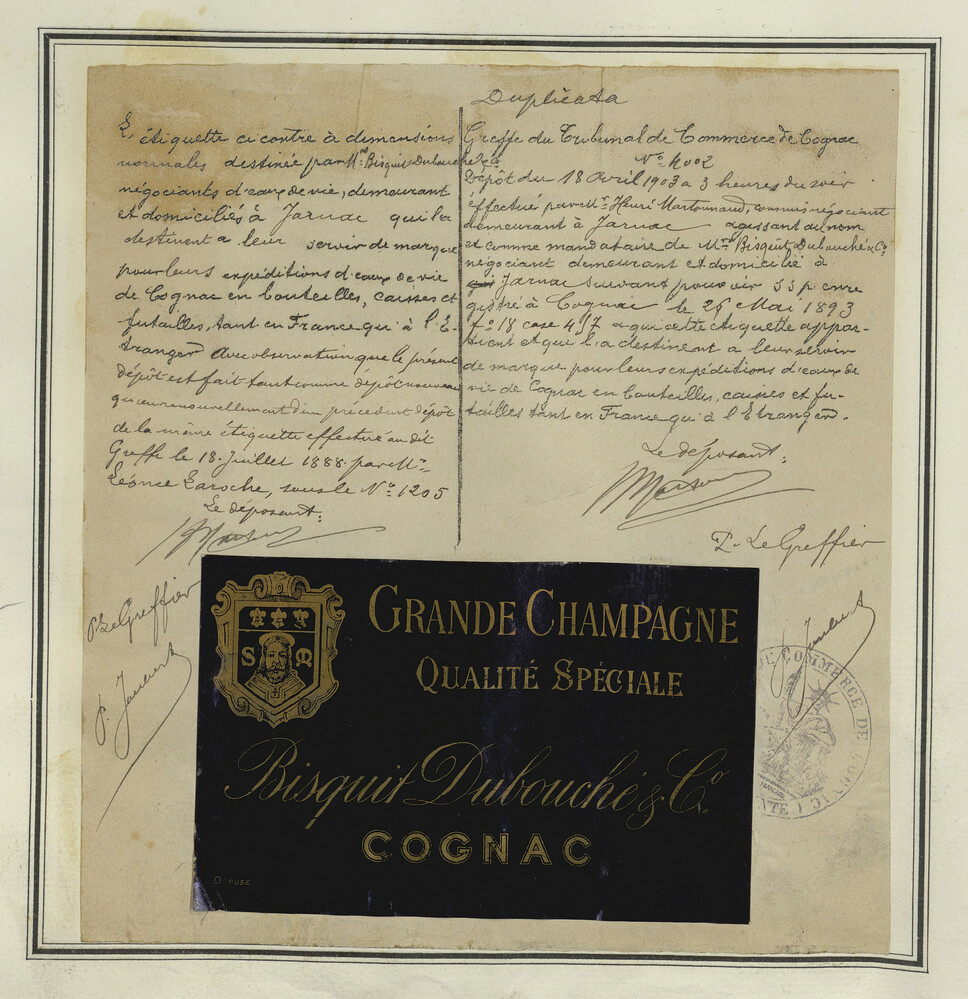 Duplicata
L'étiquette ci contre à dimensions
normales destinée par Mrs Bisquit Dubouché & Co
négociants d'eaux de vie, demeurant
et domiciliés à Jarnac qui la
destinent a leur servir de marque
pour leurs expéditions d'eaux de vie
de Cognac en bouteilles, caisses et
futailles, tant en France qu'à l'E-
tranger. Avec observation que le présent
dépôt est fait tant comme dépôt nouveau
qu'en renouvellement d'un précédent dépôt
de la même étiquette effectué au dit
Greffe le 18 Juillet 1888 par Mr
Léonce Laroche, sous le No 1205
Le déposant:
Pr Le Greffier
Greffe du Tribunal de Commerce de Cognac
No 4002
Dépôt du 18 Avril 1903 a 3 heures du soir
effectué par Mr Henri Martonnaud, commis négociant
demeurant à Jarnac agissant au nom
et comme mandataire de Mrs Bisquit Dubouché & Co
négociant demeurant et domicilié à
Jarnac suivant pouvoir s s p. enre
gistré à Cognac le 26 Mai 1893
fo 18 case 457 a qui cette étiquette appar-
tient et qui l'a destinent a leur servir
de marque pour leurs expéditions d'eaux de
vie de Cognac en bouteilles, caisses et fu-
tailles tant en France qu'à l'Etranger.
Le déposant:
P. Le Greffier
S M
GRANDE CHAMPAGNE
QUALITÉ SPÉCIALE
Bisquit Dubouché & Co
COGNAC
DÉPOSÉ
DE COMMERCE DE